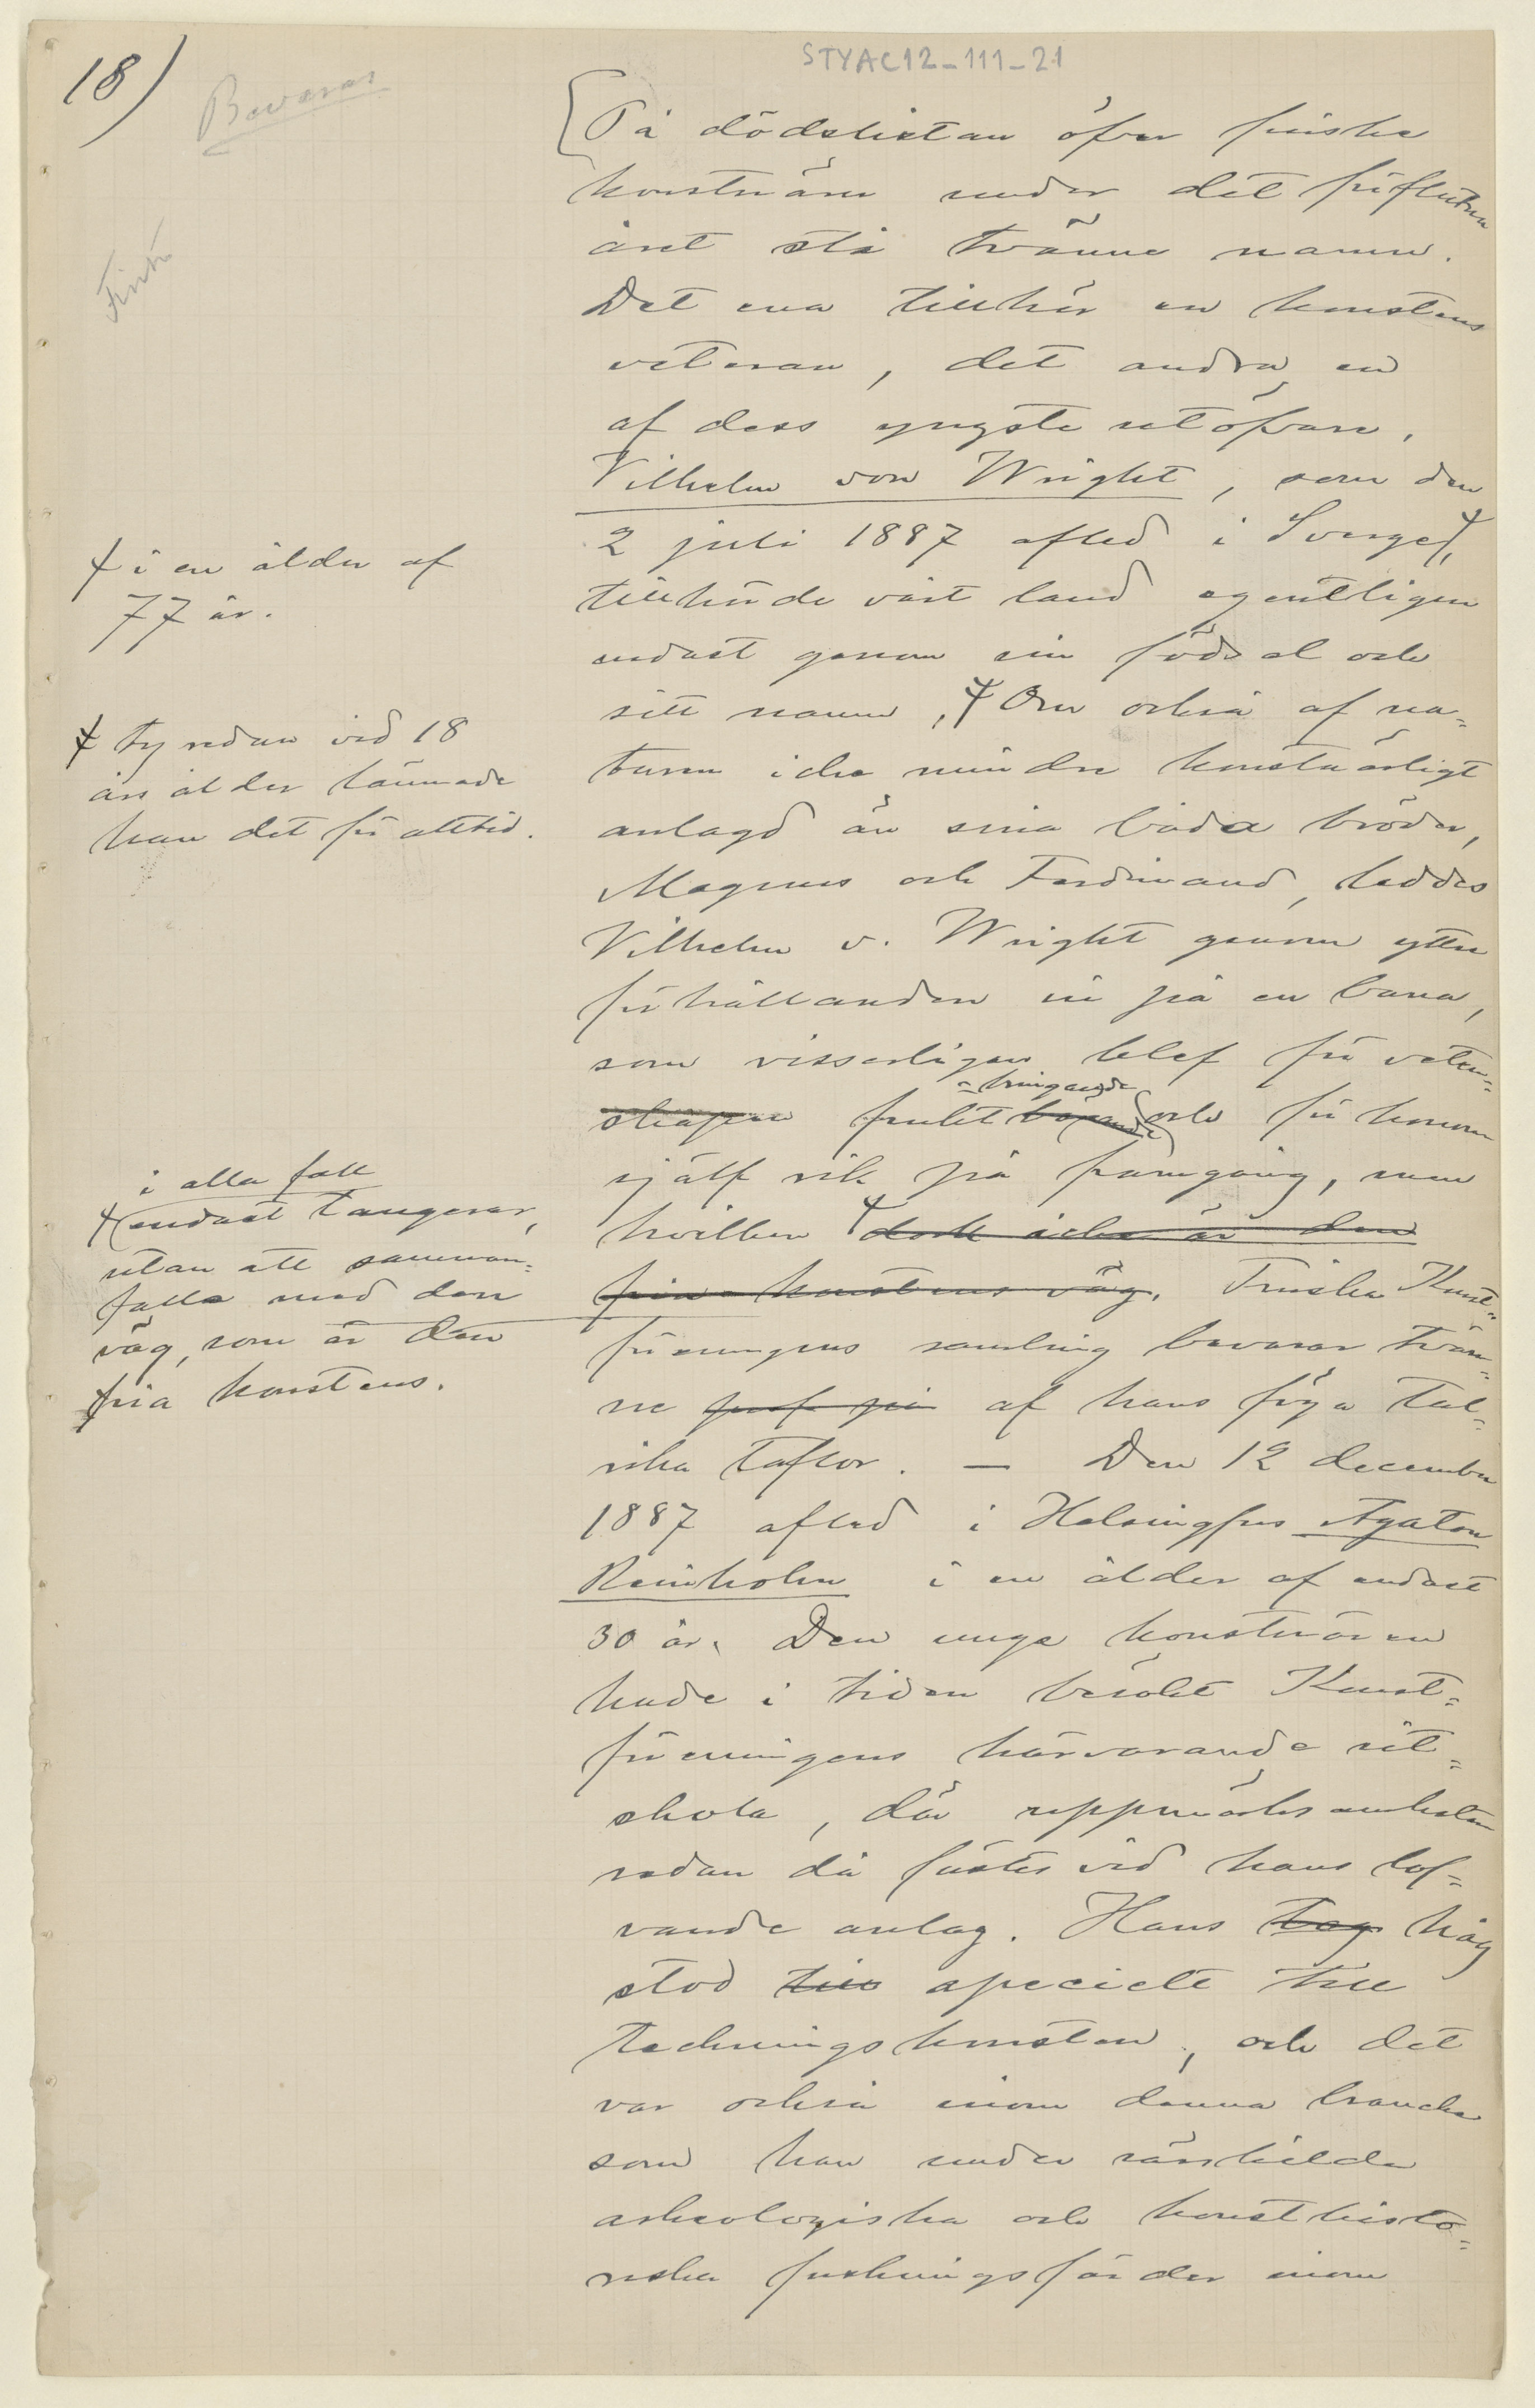 STYAC12-111-21
18)
Bevaras
På dödslistan öfver finska
konstnärer under det förflutna
året stå tvänne namn.
Det ena tillhör en konstens
veteran, det andra en
af dess yngste utöfvare.
Vilhelm von Wright, som den
2 juli 1887 afled i Sverge,
tillhörde vårt land egentligen
endast genom sin födsel och
sitt namn, Om också af na-
turen icke mindre konstnärligt
anlagd än sina båda bröder,
Magnus och Ferdinand, leddes
Vilhelm v. Wright genom yttre
förhållanden in på en bana,
som visserligen blef för veten-
skapen frukt bärande och för honom
-bringande
själf rik på framgång, men
hvilken dock icke är den
fria konstens väg. Finska Konst-
föreningens samling bevarar tvän-
ne af hans föga tal-
rika taflor. — Den 12 december
1887 afled i Helsingfors Agaton
Reinholm i en ålder af endast
30 år. Den unge konstnären
hade i tiden besökt Konst-
föreningens härvarande rit-
skola, där uppmärksamheten
redan då fästes vid hans lof-
vande anlag. Hans håg
stod till specielt till
teckningskonsten, och det
var också inom denna branche
som han under särskilda
arkeologiska och konsthisto-
riska forskningsfärder inom
i en ålder af
77 år.
ty redan vid 18
års ålder lämnade
han det för alltid.
i alla fall
endast tangerar,
utan att samman-
falla med den
väg, som är den
fria konstens.